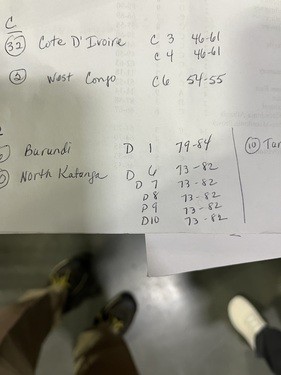 C
32 Cote D'Ivoire C 3 46-61
C 4 46-61
West Congo C6 54-55
Burundi D 1 79-84
North Katanga D 6 73-82
D 7 73-82
D 8 73-82
D 9 73-82
D10 73-82
10 Tan